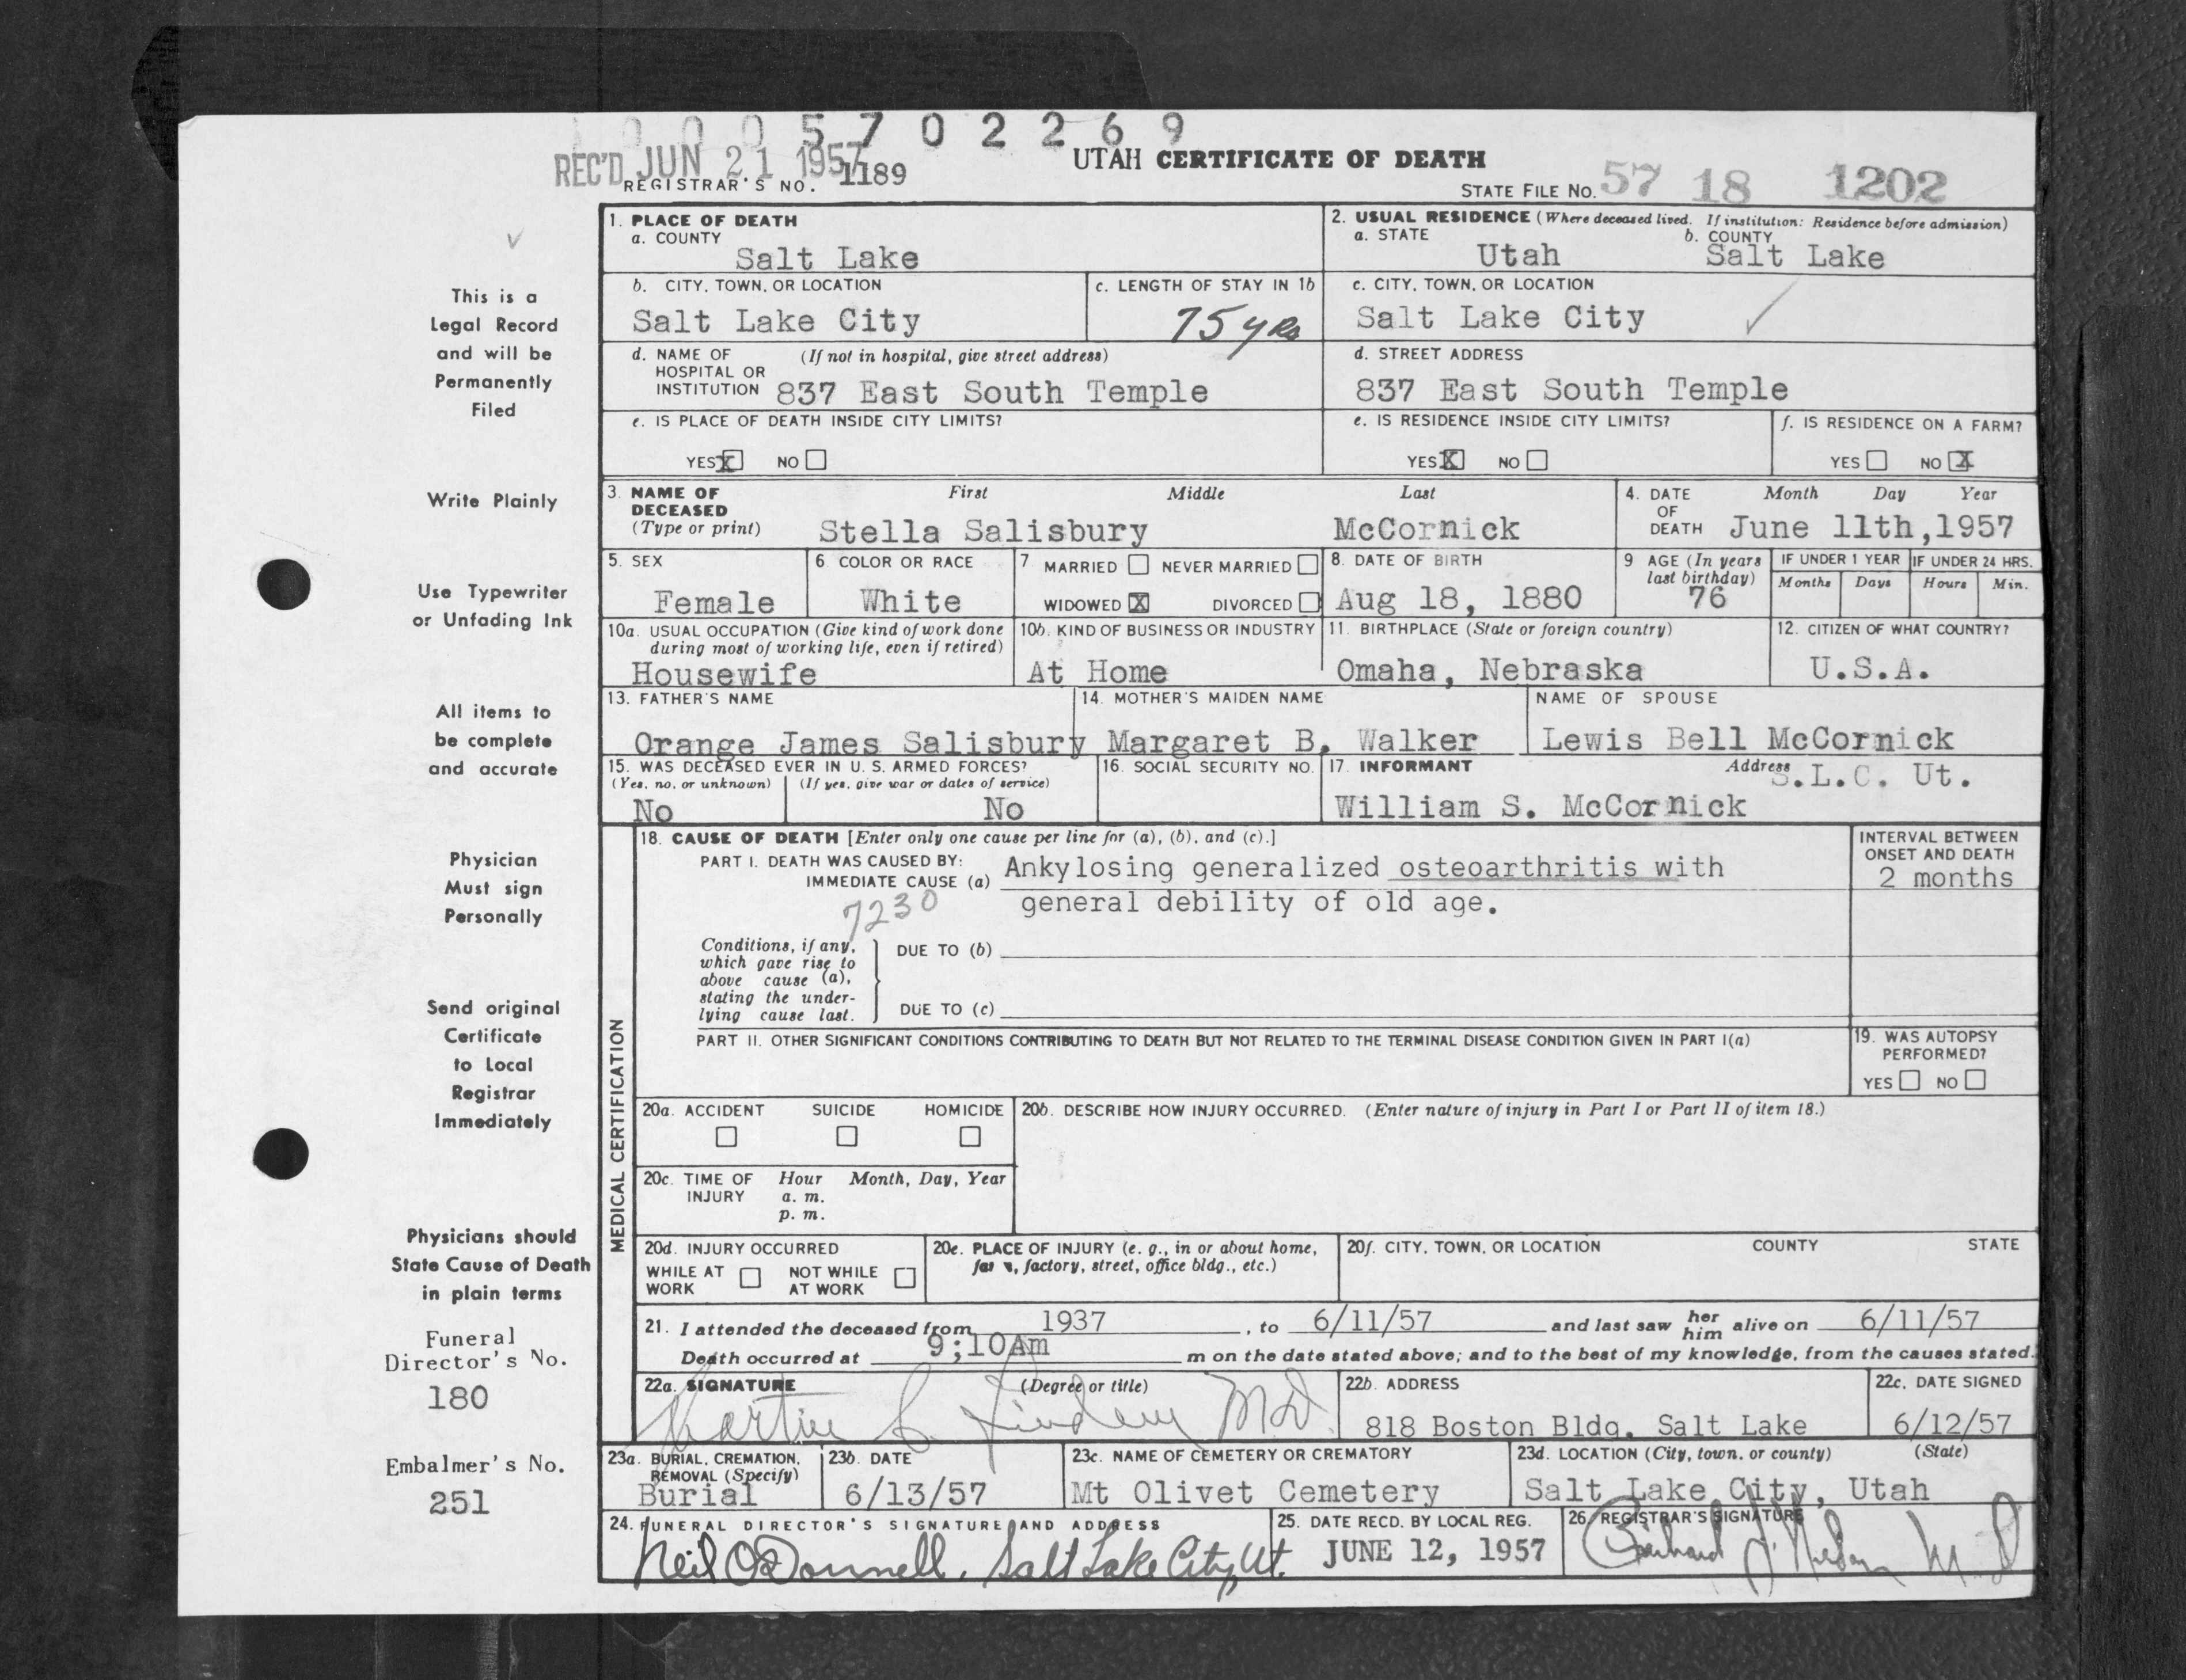 1 0 0 0 5 7 0 2 2 6 9
REC'D JUN 21 1957
REGISTRAR'S NO. 1189
UTAH CERTIFICATE OF DEATH
STATE FILE NO. 57 18 1202
This is a
Legal Record
and will be
Permanently
Filed
Write Plainly
Use Typewriter
or Unfading Ink
All items to
be complete
and accurate
Physician
Must sign
Personally
Send original
Certificate
to Local
Registrar
Immediately
Physicians should
State Cause of Death
in plain terms
Funeral
Director's No.
180
Embalmer's No.
251
1. PLACE OF DEATH
a. COUNTY
Salt Lake
2. USUAL RESIDENCE (Where deceased lived. If institution: Residence before admission)
a. STATE b. COUNTY
Utah Salt Lake
b. CITY, TOWN, OR LOCATION
Salt Lake City
c. LENGTH OF STAY IN 1b
75 yrs
c. CITY, TOWN, OR LOCATION
Salt Lake City
d. NAME OF (If not in hospital, give street address)
HOSPITAL OR
INSTITUTION 837 East South Temple
d. STREET ADDRESS
837 East South Temple
e. IS PLACE OF DEATH INSIDE CITY LIMITS?
YES X NO
e. IS RESIDENCE INSIDE CITY LIMITS?
YES X NO
f. IS RESIDENCE ON A FARM?
YES NO X
3. NAME OF DECEASED (Type or print)
First Middle Last
Stella Salisbury McCornick
4. DATE OF DEATH
Month Day Year
June 11th,1957
5. SEX
Female
6. COLOR OR RACE
White
7. MARRIED NEVER MARRIED
WIDOWED X DIVORCED
8. DATE OF BIRTH
Aug 18, 1880
9 AGE (In years
last birthday)
76
IF UNDER 1 YEAR
Months Days
IF UNDER 24 HRS.
Hours Min.
10a. USUAL OCCUPATION (Give kind of work done
during most of working life, even if retired)
Housewife
10b. KIND OF BUSINESS OR INDUSTRY
At Home
11. BIRTHPLACE (State or foreign country)
Omaha, Nebraska
12. CITIZEN OF WHAT COUNTRY?
U.S.A.
13. FATHER'S NAME
Orange James Salisbury
14. MOTHER'S MAIDEN NAME
Margaret B. Walker
NAME OF SPOUSE
Lewis Bell McCornick
15. WAS DECEASED EVER IN U. S. ARMED FORCES?
(Yes, no, or unknown) (If yes, give war or dates of service)
No No
16. SOCIAL SECURITY NO.
17. INFORMANT Address
S.L.C. Ut.
William S. McCornick
MEDICAL CERTIFICATION
18. CAUSE OF DEATH [Enter only one cause per line for (a), (b), and (c).]
PART I. DEATH WAS CAUSED BY:
IMMEDIATE CAUSE (a) Ankylosing generalized osteoarthritis with
7230 general debility of old age.
INTERVAL BETWEEN
ONSET AND DEATH
2 months
Conditions, if any,
which gave rise to
above cause (a),
stating the under-
lying cause last.
DUE TO (b)
DUE TO (c)
PART II. OTHER SIGNIFICANT CONDITIONS CONTRIBUTING TO DEATH BUT NOT RELATED TO THE TERMINAL DISEASE CONDITION GIVEN IN PART I(a)
19. WAS AUTOPSY
PERFORMED?
YES NO
20a. ACCIDENT SUICIDE HOMICIDE
20b. DESCRIBE HOW INJURY OCCURRED. (Enter nature of injury in Part I or Part II of item 18.)
20c. TIME OF INJURY
Hour Month, Day, Year
a. m.
p. m.
20d. INJURY OCCURRED
WHILE AT WORK NOT WHILE AT WORK
20e. PLACE OF INJURY (e. g., in or about home,
factory, street, office bldg., etc.)
20f. CITY, TOWN, OR LOCATION COUNTY STATE
21. I attended the deceased from 1937, to 6/11/57 and last saw her him alive on 6/11/57
Death occurred at 9;10Am m on the date stated above; and to the best of my knowledge, from the causes stated.
22a. SIGNATURE (Degree or title)
Martin C. Lindem MD.
22b. ADDRESS
818 Boston Bldg. Salt Lake
22c. DATE SIGNED
6/12/57
23a. BURIAL, CREMATION,
REMOVAL (Specify)
Burial
23b. DATE
6/13/57
23c. NAME OF CEMETERY OR CREMATORY
Mt Olivet Cemetery
23d. LOCATION (City, town, or county) (State)
Salt Lake City, Utah
24. FUNERAL DIRECTOR'S SIGNATURE AND ADDRESS
Neil O'Donnell, Salt Lake City, Ut.
25. DATE RECD. BY LOCAL REG.
JUNE 12, 1957
26. REGISTRAR'S SIGNATURE
M D